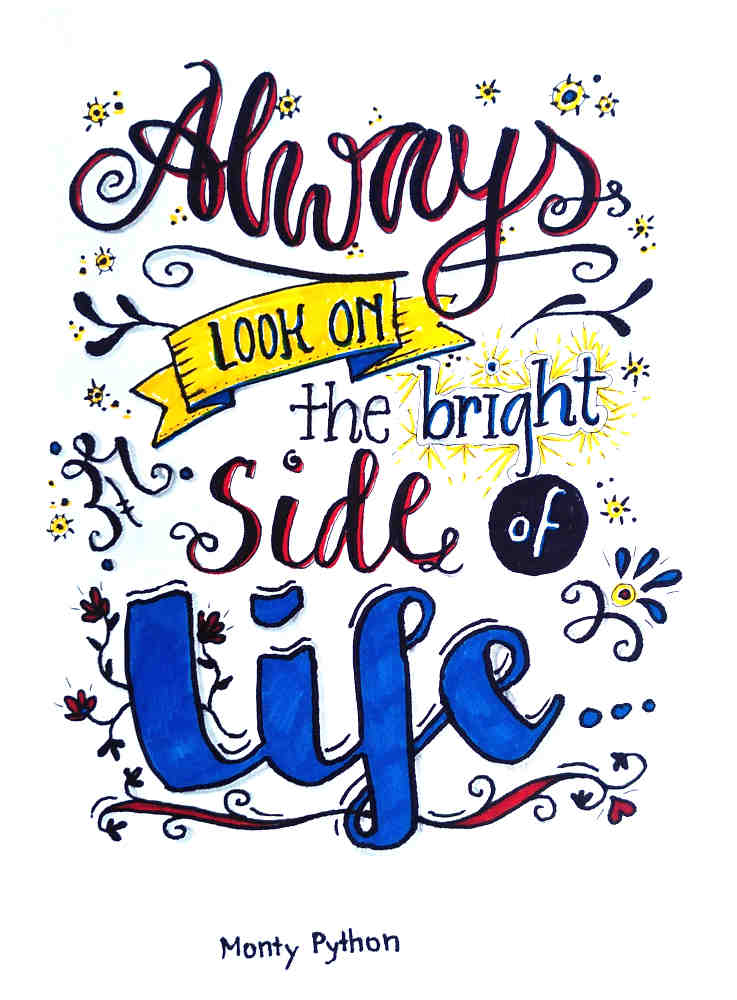 Always
LOOK ON
the bright
Side of
Life...
Monty Python